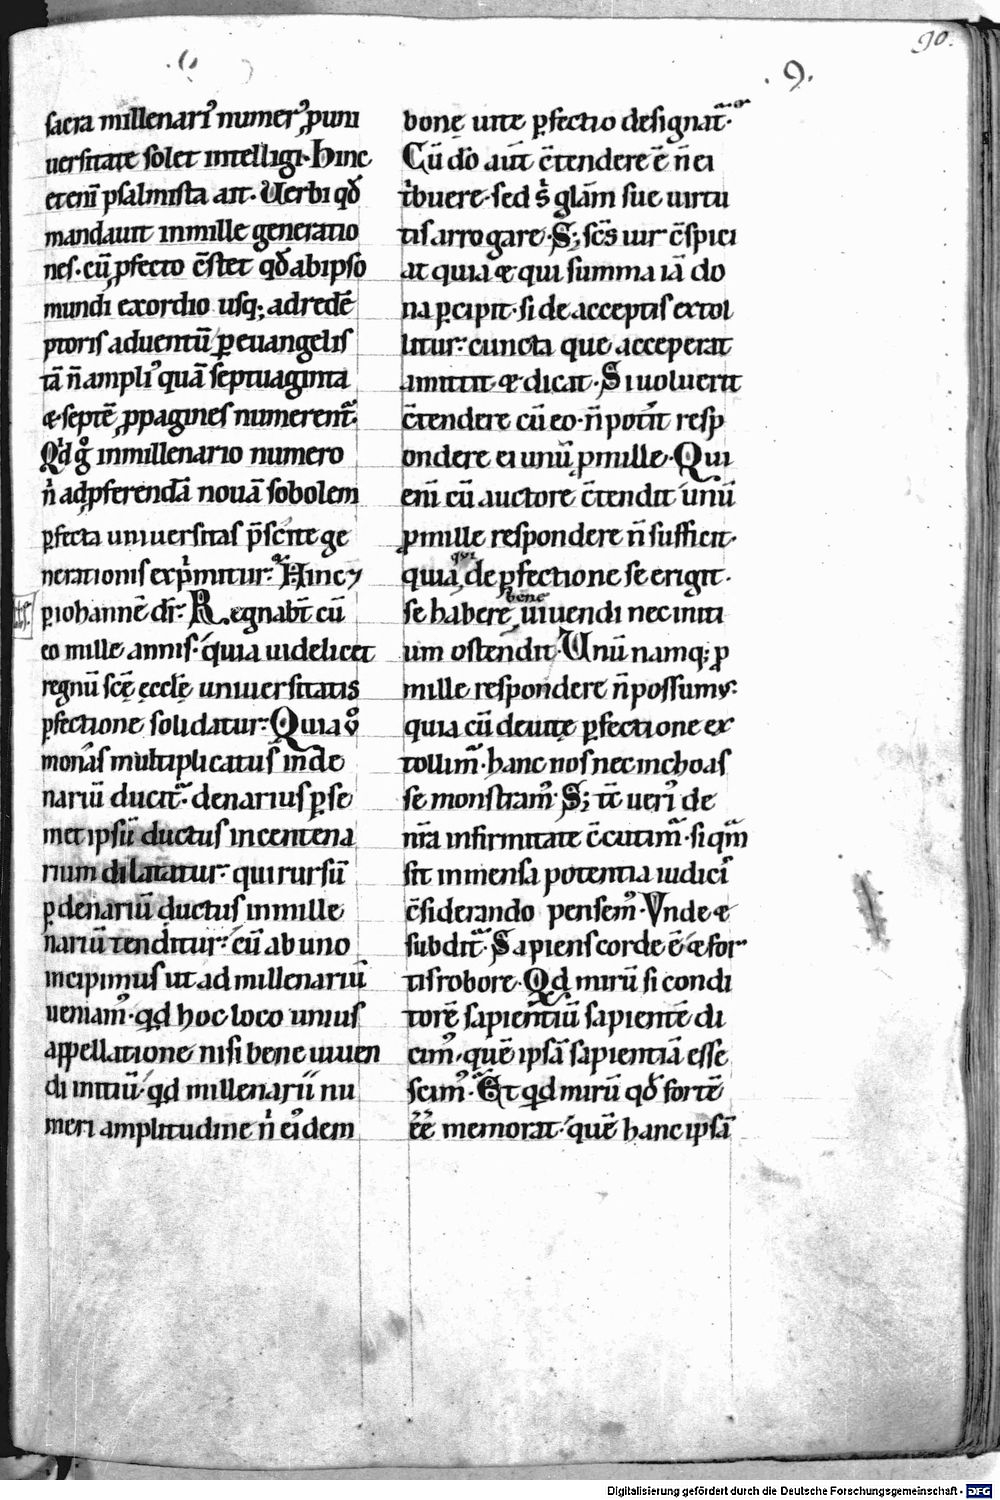 90.
.9.
sacra millenariꝰ numerꝰ ꝓ uni
uersitate solet intelligi. Hinc
etenī psalmista ait. Verbi qđ
mandauit inmille generatio
nes. cū ꝑfecto c̄stet qđ abipso
mundi exordio usq; adredē
ptoris aduentū ꝑ euangelis
tā n̄ ampliꝰ quā septuaginta
& septē ꝓpagines numerent᷑.
Qid gͦ inmillenario numero
nͥ ad ꝓferendā nouā sobolem
ꝑfecta uniuersitas p̄scite ge
nerationis exprͥmitur. Hinc
ꝑ iohannē dr̄. Regnabt̄ cū
eo mille annis. quia uidelicet
regnū scē ecclē uniuersitatis
ꝑfectione solidatur. Quia uͦ
monas multiplicatus inde
nariū ducit᷑. denarius ꝑ se
met ipsū ductus incentena
rium dilatatur. qui rursū
ꝑ denariū ductus inmille
nariū tenditur. cū ab uno
incipimus ut ad millenariū
ueniamꝰ. qd hoc loco unius
appellatione nisi bene uiuen
di initiū. qd millenarii nu
meri amplitudine nͥ eiꝰdem
bonę uite ꝑfectio designat᷑.
Cū do᷑ aut̄ c̄tendere ē n̄ ei
tͥbuere. sed sͥ glām sue uirtu
tis arrogare. S; scs̄ uir c̄spici
at quia & qui summa iā do
na ꝑcipit. si de acceptis extol
litur. cuncta que acceperat
amittit & dicat. Si uoluerit
c̄tendere cū eo. n̄ potit resp
ondere ei unū ꝑ mille. Qui
eni cū auctore c̄tendit unū
ꝑ mille respondere n̄ sufficit.
qui
quia de ꝑfectione se erigit.
bene
se habere uiuendi nec initi
um ostendit. Vnū namq; ꝑ
mille respondere n̄ possumꝰ.
quia cū de uitę ꝑfectione ex
tollimᷓ. hanc nos nec inchoas
se monstramꝰ. S; tc̄ ueriꝰ de
nr̄a infirmitate c̄cutimᷓ. si qm̄
sit inmensa potentia iudicͥ
c̄siderando pensemꝰ. Vnde &
subdit᷑. Sapiens corde ē & for
tis robore. Qd mirū si condi
torē sapientiū sapientē di
cimꝰ. quē ipsā sapientiā esse
scimꝰ. Et qd mirū qđ fortē
ēē memorat. quē hanc ipsā
Digitalisierung gefördert durch die Deutsche Forschungsgemeinschaft - DFG